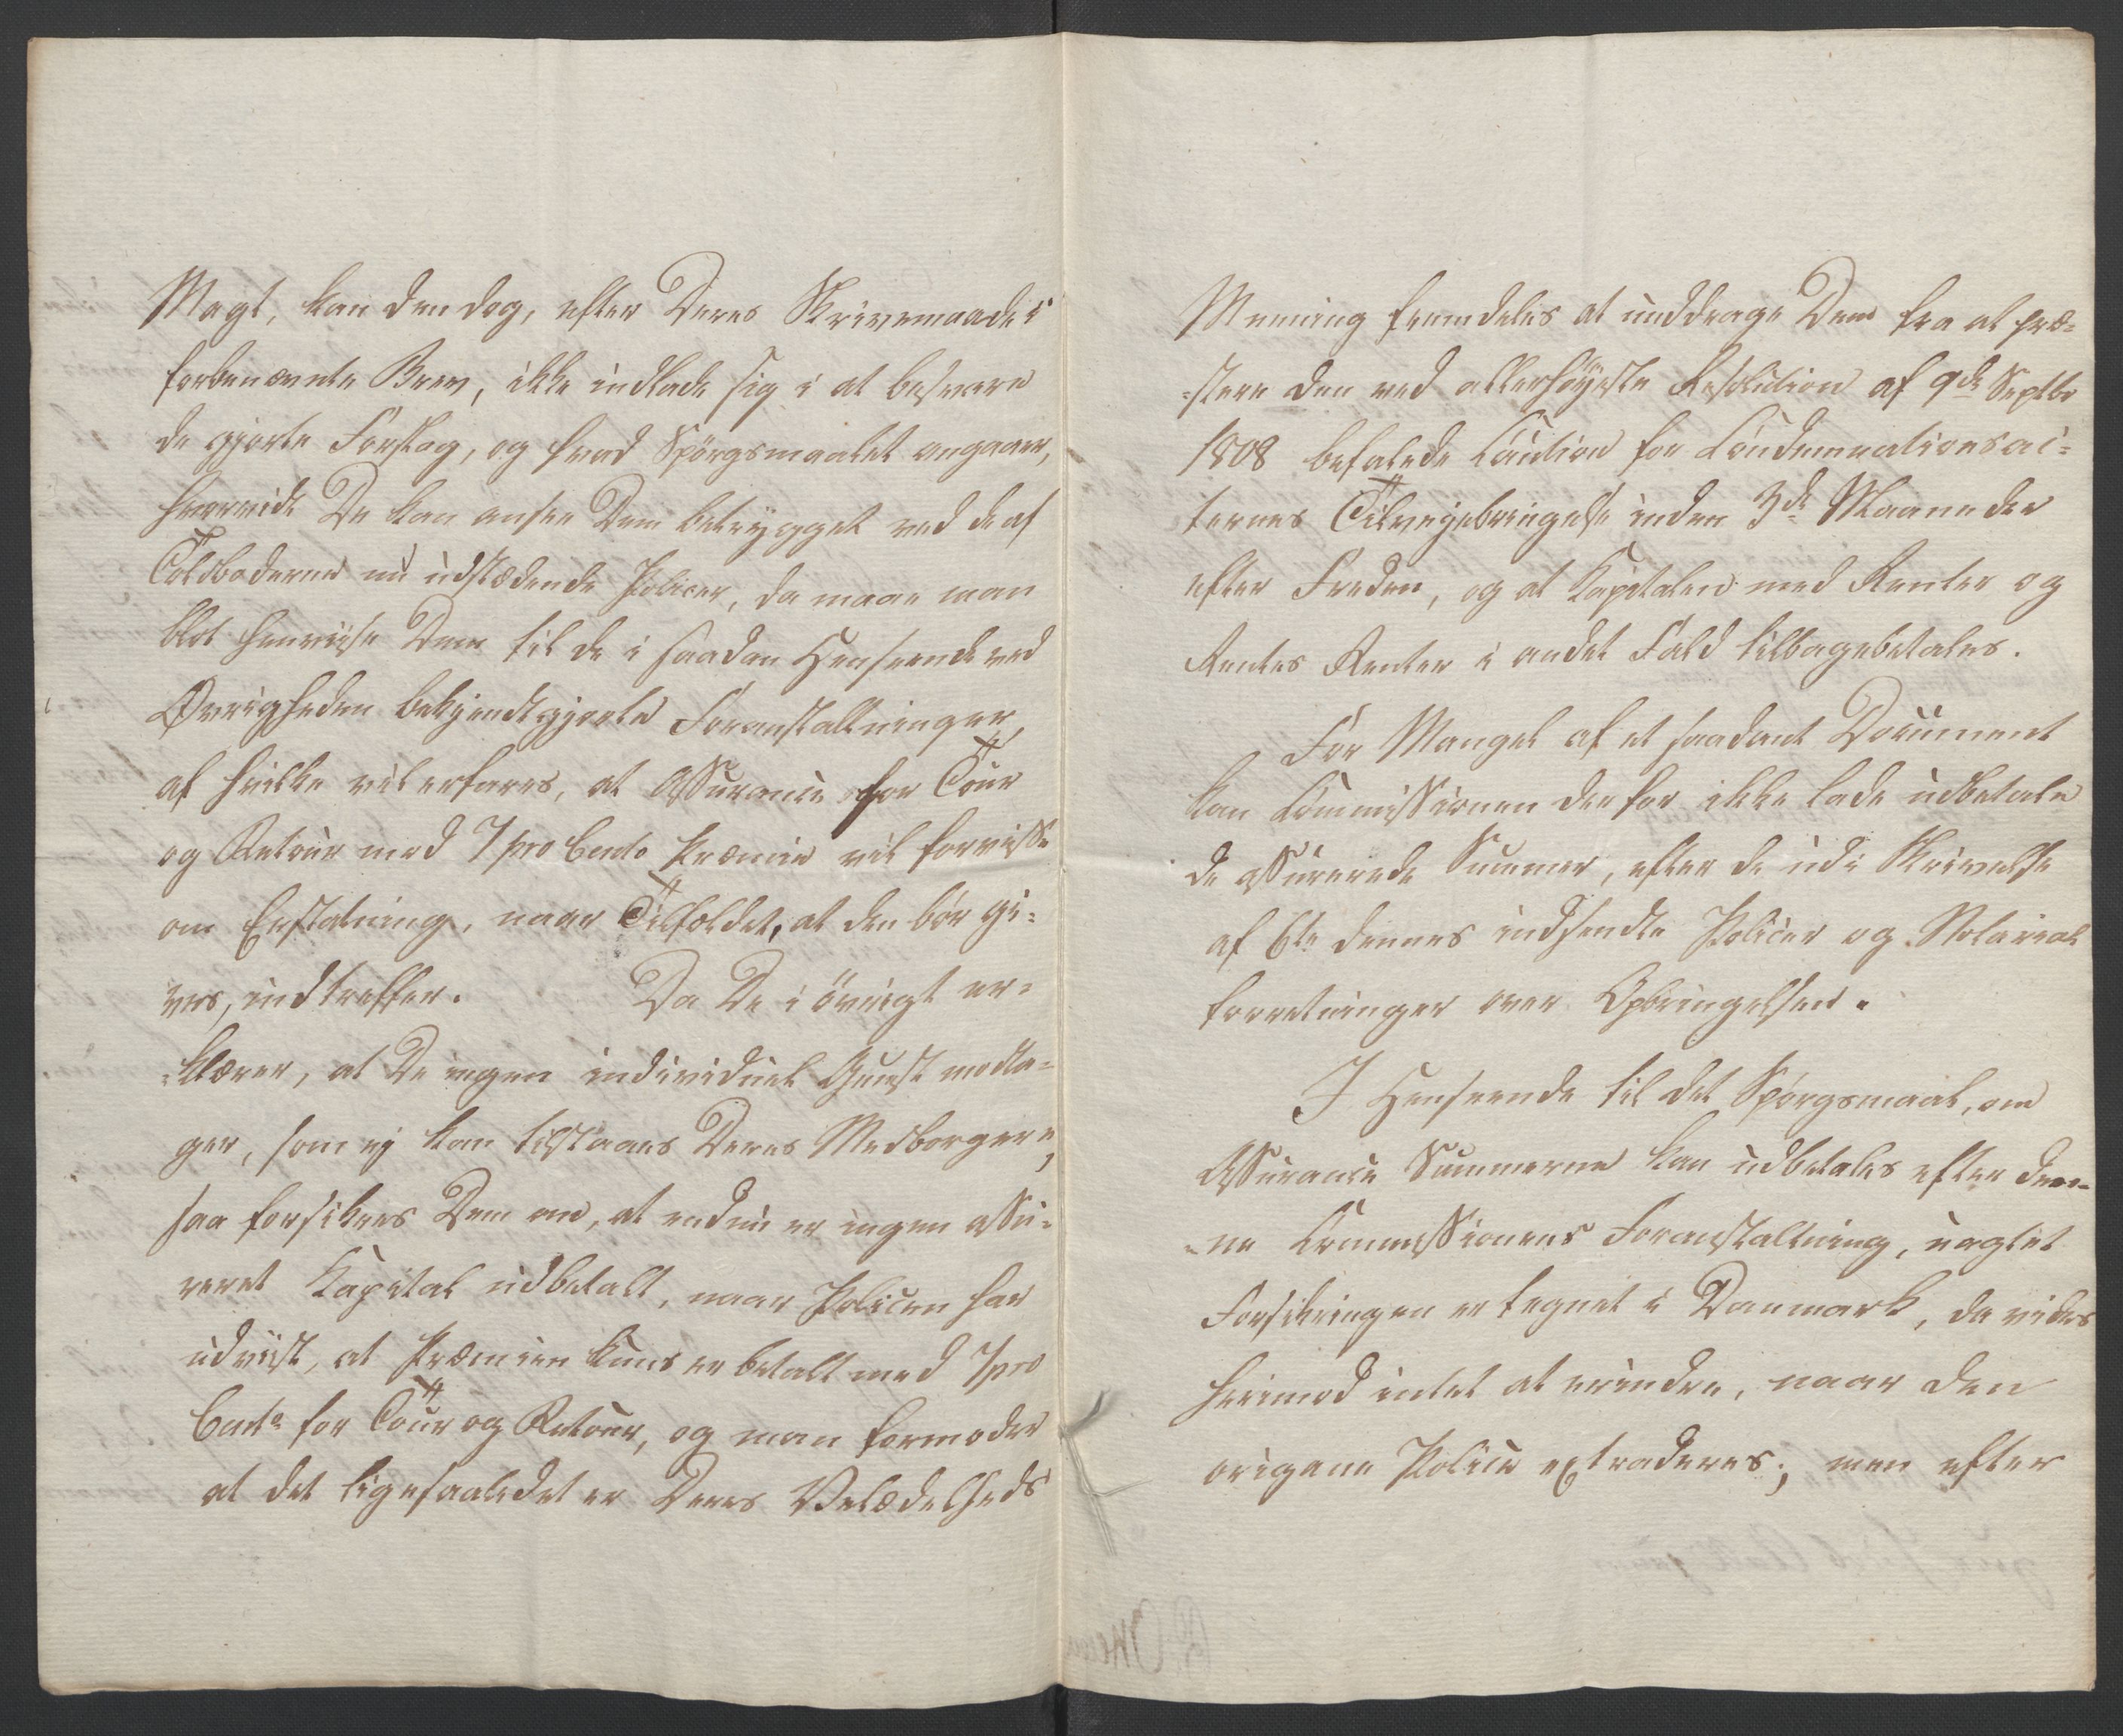 Magt, kan den dog, efter Deres Skrivemaade i
forbenævnte Brev, ikke indlade sig i at besvare
de gjorte Forslag, og hvad Spörgsmaalet angaaer,
hvorvidt De kan ansee Dem betrygget ved de af
Toldboderne nu udstædende Policer, da maae man
blot henviise Dem til de i saadan Henseende ved
Øvrigheden bekjendtgjorte Foranstaltninger,
af hvilke vil erfares, at Assurance for Tour
og Retour med 7 pro Cento Præmie vil forvisse
om Erstatning, naar Tilfældet, at den bör gi-
ves, indtreffer. Da De i övrigt er-
klærer, at De ingen individuel Gunst modta-
ger, som ej kan tilstaaes Deres Medborgere,
saa forsikres Dem om, at endnu er ingen assu-
reret Kapital udbetalt, naar Policen har
udviist, at Præmien kuns er betalt med 7 pro
Cento for Tour og Retour, og man formoder
at det ligesaaledet er Deres Velædelheds
Mening fremdeles at unddrage Dem fra at præ-
-stere den ved allerhöyeste Resolution af 9de Septbr
1808 befalede Caution for Condemnationsac-
ternes Tilvejebringelse inden 3de Maaneder
efter Freden, og at Kapitalen med Renter og
Rentes Renter i andet Fald tilbagebetales.
For Mangel af et saadant Document
kan Commissionen derfor ikke lade udbetale
de assurerede Summer, efter de udi Skrivelse
af 6te dennes indsendte Policer og Notarial
forretninger over Opbringelsen.
I Henseende til det Spörgsmaal, om
Assurance Summerne kan udbetales efter den-
-ne Commissionens Foranstaltning, uagtet
Forsikringen er tegnet i Danmark, da vides
herimod intet at erindre, naar den
origane Police extraderes; men efter